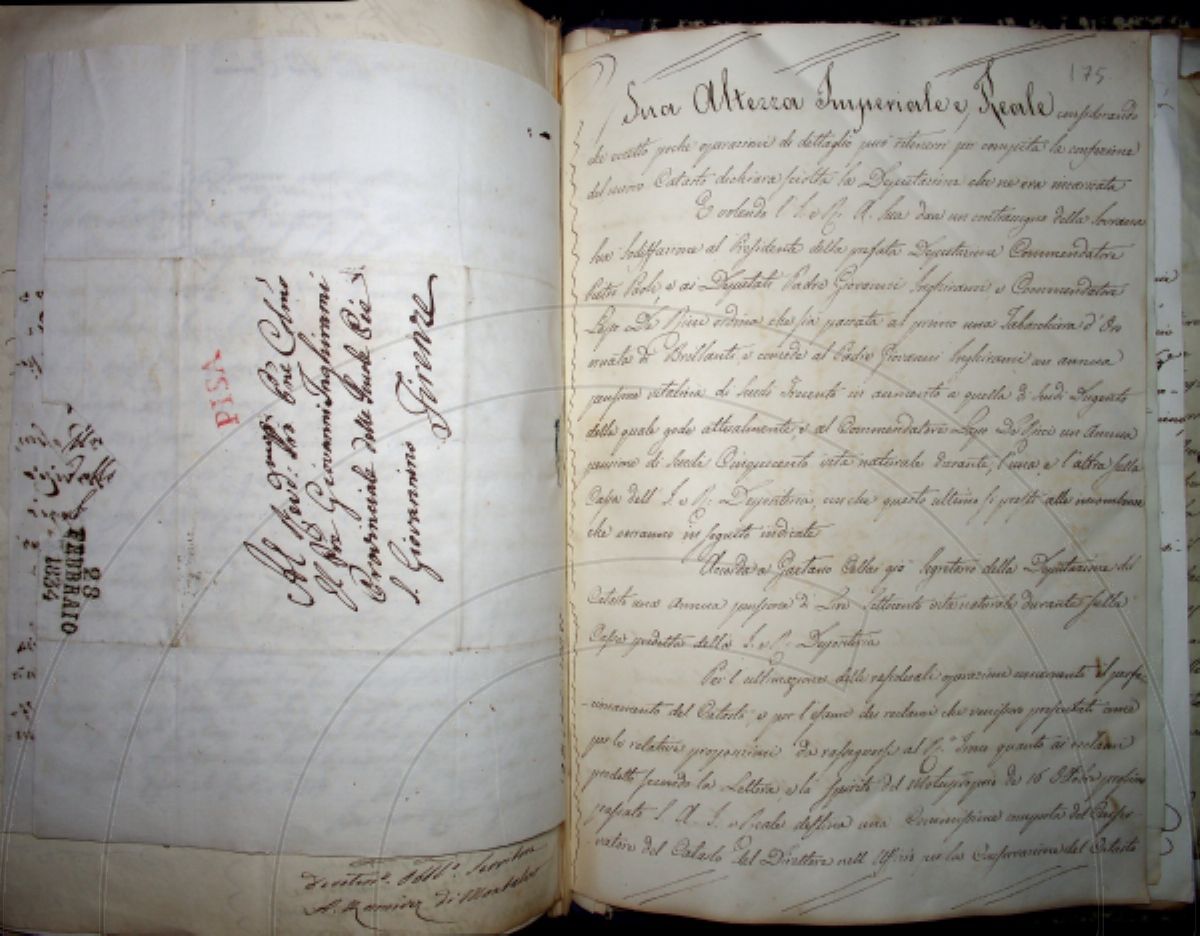 Al Rev.d: Pre
Il Pre Giovanni Inghirami
Provinciale delle Scuole Pie
S. Giovannino
Firenze
PISA
28
FEBBRAIO
1834
A. Ramirez di Montalvo
175
Sua Altezza Imperiale e Reale considerando
che eccetto poche operazioni di dettaglio può ritenersi per compita la confezione
del nuovo Catasto dichiara sciolta la Deputazione che ne era incaricata
E volendo l'I. e R. A. Sua dare un contrassegno della Sovrana
Sua sodisfazione al Presidente della prefata Deputazione Commendatore
Pietro Paoli, e ai Deputati Padre Giovanni Inghirami e Commendatore
Lapo De Ricci ordina che sia passata al primo una Tabacchiera d'Oro
ornata di Brillanti, e concede al Padre Giovanni Inghirami un annua
pensione vitalizia di Scudi Trecento in aumento a quella di Scudi Dugento
della quale gode attualmente, e al Commendatore Lapo De Ricci un Annua
pensione di Scudi Cinquecento vita naturale durante, l'una e l'altra sulla
Cassa dell'I. e R. Depositeria, con che questo ultimo si presti alle incombenze
che verranno in seguito indicate
Accorda a Gaetano Cellai già Segretario della Deputazione del
Catasto una Annua pensione di Lire Settecento vita naturale durante sulla
Cassa predetta della I. e R. Depositeria
Per l'ultimazione delle residuali operazioni concernenti il perfe
-zionamento del Catasto, e per l'esame dei reclami che venissero presentati come
per le relative proposizioni da rassegnarsi al R.o Trono quanto ai reclami
predetti secondo la Lettera, e lo spirito del Motuproprio de 16 Ottobre prossimo
passato S. A. I. e Reale destina una Commissione composta del Conser
-vatore del Catasto del Direttore nell'Ufizio per la Conservazione del Catasto